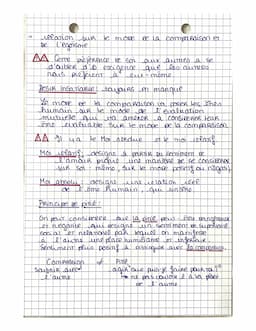 - relation sur le mode de la comparaison et
de l'égoïsme
⚠⚠ Cette préférence de soi aux autres a se
d'aider d'où exigence que les autres
nous préfèrent à eux-même.
Désir insatiable: toujours en manque
Le mode de la comparaison va poser les êtres
humain sur le mode de l'évaluation
mutuelle qui va amener à considérer leur
sur le mode de la comparaison
⚠⚠ Il y a le Moi absolue et le moi relatif
Moi relatif: désigne à partir du sentiment de
l'amour propre une manière de se considérer
sur soi-même, sur le mode positif ou négatif.
Moi absolu: désigne une relation
de l'être humain, qui
Principe de pitié:
On peut considérer que la pitié peut-être
et négative, qui désigne un sentiment de supériorité
social et relationnel par lequel on manifeste
à l'autre une place humiliante et inférieure.
Sentiment plus positif à assigner avec la compassion.
Compassion ≠ Pitié
Souffrir avec l'autre
agir que puis-je faire pour toi?
→ ne pas vouloir être à la place
de l'autre